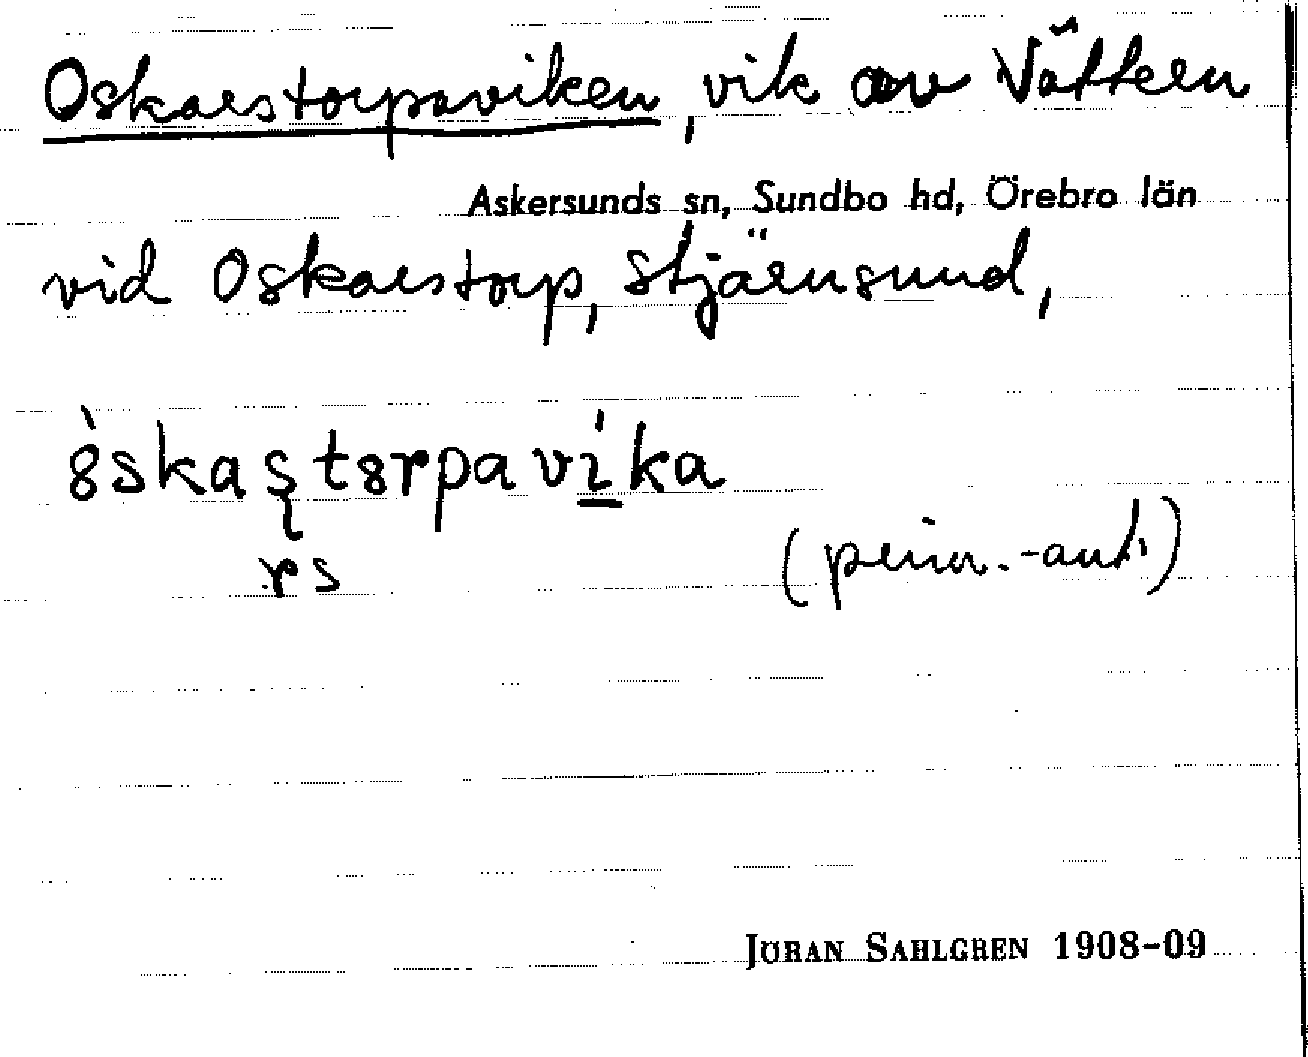 Oskarstorpaviken, vik av Vättern
Askersunds sn, Sundbo hd, Örebro län
vid Oskarstorp, Stjärnsund,
òskaştorpavíka
rs
JÖRAN SAHLGREN 1908-09